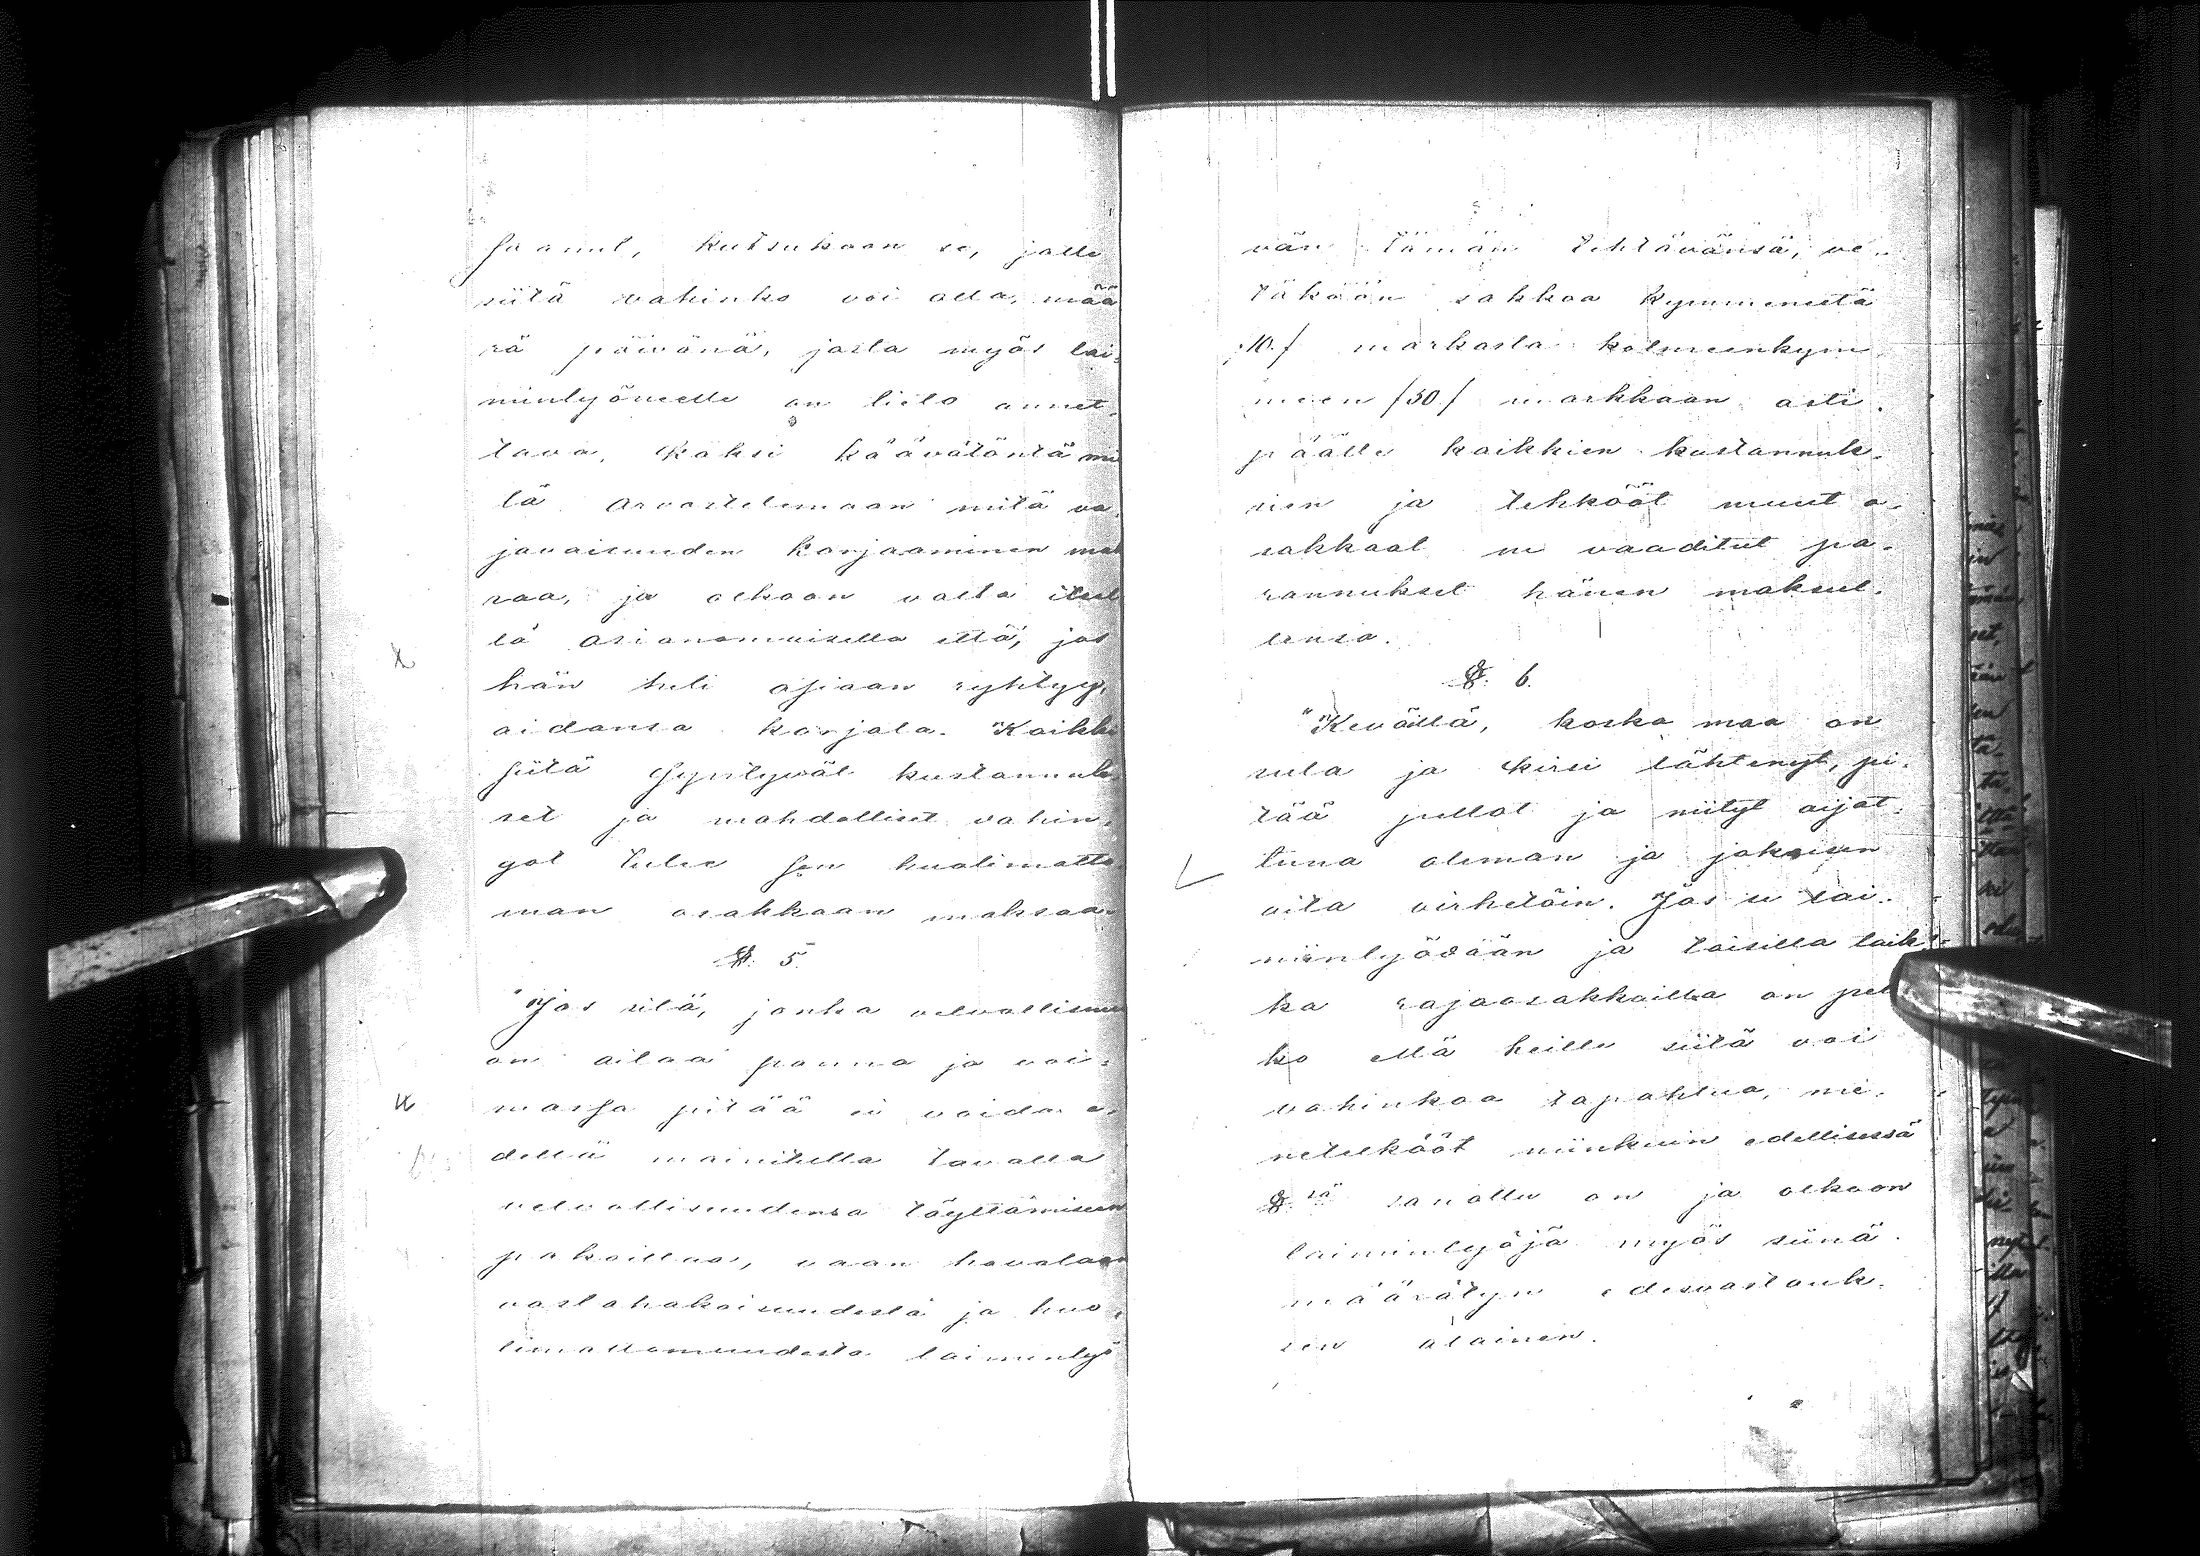 saanut, kutsukaan se, jolle
siitä vahinko voi olla, mää
rä päivänä, josta myös lai-
minlyöneelle on tieto annet-
tava, kaksi käävätöntä mi
tä arvostelemaan mitä va-
javaisuuden korjaaminen mak
saa, ja olkoon valta itsel
lä asianomaisella että, jos
hän tuli asiaan ryhtyy,
aidansa korjata. Kaikki
siitä syntyvät kustannuk
set ja mahdolliset vahin-
got tulee sen huolimatto
man osakkaan maksaa
§. 5.
"Jos sitä, jonka velvollisuus
on aitaa panna ja voi-
massa pitää ei voida e-
dellä mainitulla tavalla
velvollisuudensa täyttämiseen
pakoittaa, vaan havataan
vastahakoisuudesta ja huo-
limattomuudesta laiminlyö
vän tämän tehtävänsä, ve-
täköön sakkoa kymmenestä
/10./ markasta kolmeenkym
meen /30/ markkaan asti
päälle kaikkien kustannuk-
sien ja tehkööt muut o-
sakkaat ne vaaditut pa-
rannukset hänen maksut-
tensa.
§. 6.
"Keväillä, koska maa on
sula ja kirsi lähtenyt, pi-
tää pellot ja niityt aijat-
tuna oleman ja jokaisen
aita virhetöin. Jos se lai-
minlyödään ja toisilla laik-
ka rajaosakkailla on pel
ko että heille siitä voi
vahinkoa tapahtua, me-
netelkööt niinkuin edellisessä
§.sä sanottu on ja olkoon
laiminlyöjä myös siinä
määrätyn edesvastauk-
sen alainen.